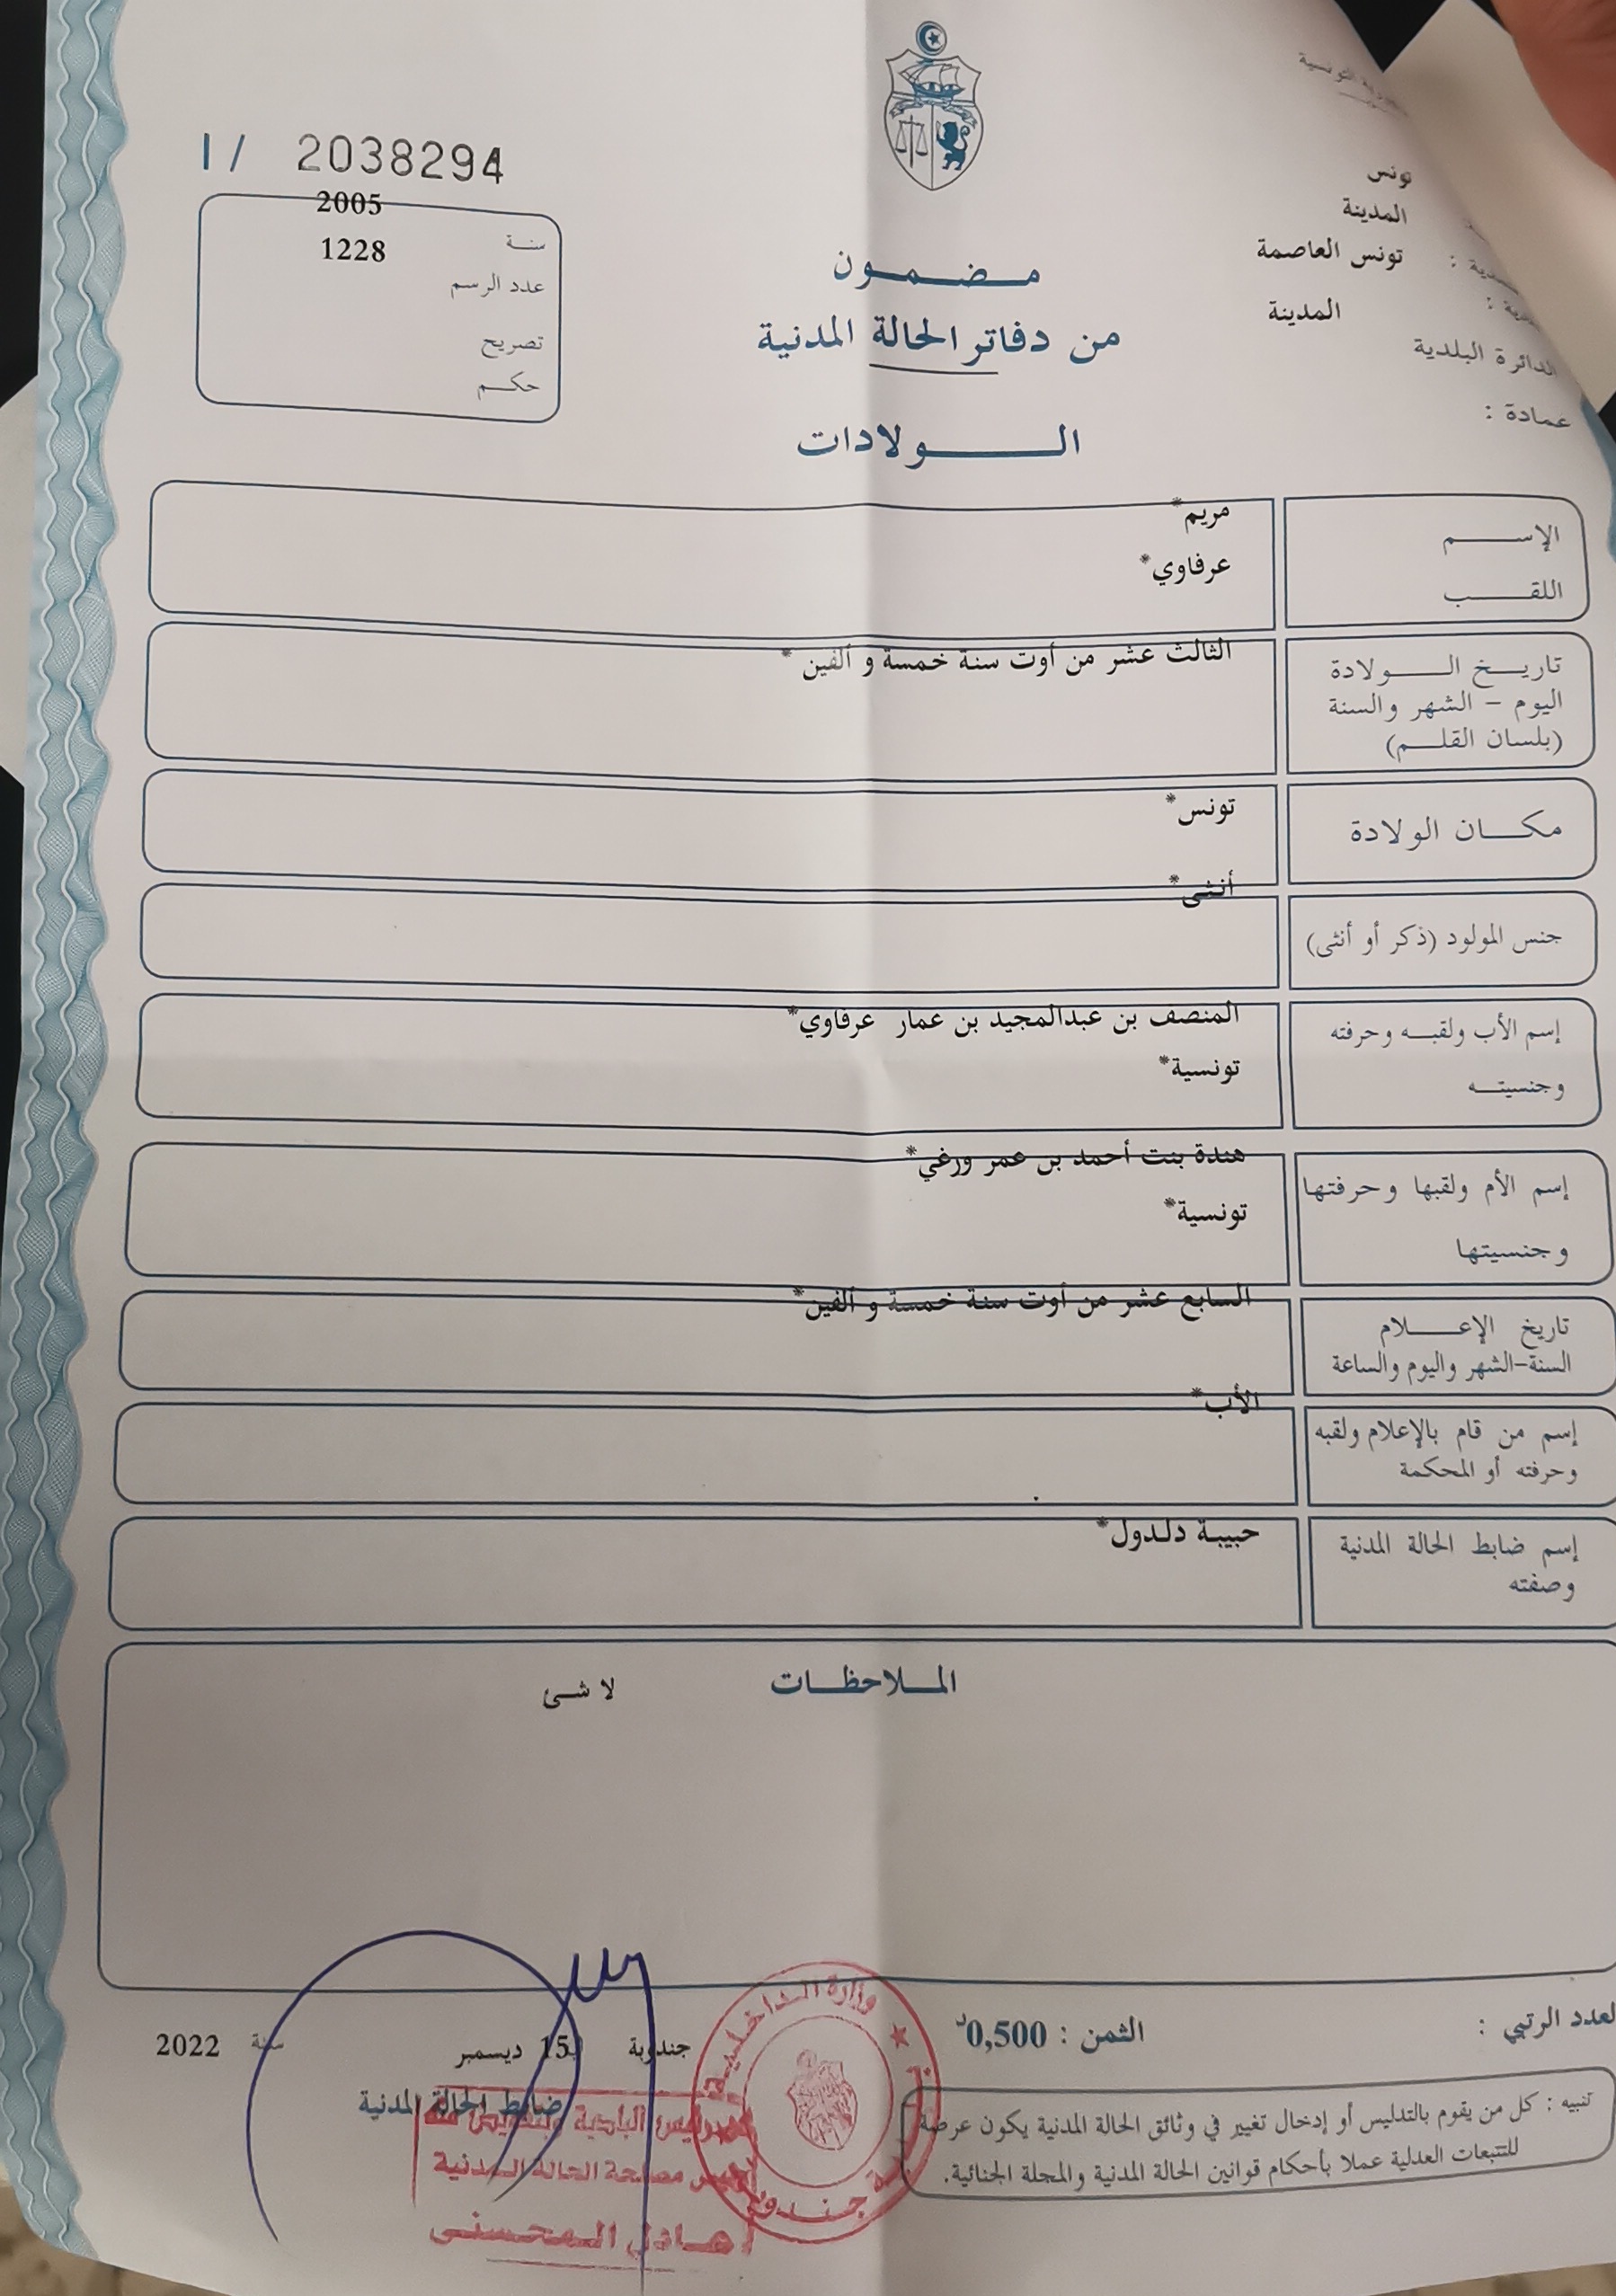 التونسية
تونس
المدينة
تونس العاصمة
المدينة
الدائرة البلدية
عمادة :
مضمون
من دفاتر الحالة المدنية
الولادات
I / 2038294
2005
سنة
1228
عدد الرسم
تصريح
حكم
الإسم
مريم*
اللقب
عرفاوي*
تاريخ الولادة
اليوم – الشهر والسنة
(بلسان القلم)
الثالث عشر من أوت سنة خمسة و ألفين *
مكان الولادة
تونس*
جنس المولود (ذكر أو أنثى)
أنثى*
إسم الأب ولقبه وحرفته
وجنسيته
المنصف بن عبدالمجيد بن عمار عرفاوي*
تونسية*
إسم الأم ولقبها وحرفتها
وجنسيتها
هندة بنت أحمد بن عمر ورغي*
تونسية*
تاريخ الإعلام
السنة-الشهر واليوم والساعة
السابع عشر من أوت سنة خمسة و ألفين*
إسم من قام بالإعلام ولقبه
وحرفته أو المحكمة
الأب*
إسم ضابط الحالة المدنية
وصفته
حبيبة دلدول*
الملاحظات
لا شئ
العدد الرتبي :
الثمن : 0,500د
جندوبة 15 ديسمبر سنة 2022
ضابط الحالة المدنية
تنبيه : كل من يقوم بالتدليس أو إدخال تغيير في وثائق الحالة المدنية يكون عرضة
للتتبعات العدلية عملا بأحكام قوانين الحالة المدنية والمجلة الجنائية.
وزارة الداخلية
جندوبة
رئيس البلدية وبتفويض منه
رئيس مصلحة الحالة المدنية
عادل المحسني